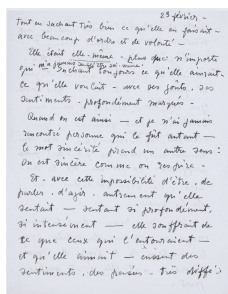 23 février -
Tout en sachant très bien ce qu'elle en faisait -
avec beaucoup d'ordre et de volonté -
Elle était elle-même - plus que n'importe
qui m'a jamais
Sachant toujours ce qu'elle aimait -
ce qu'elle voulait - avec ses goûts, ses
sentiments - profondément marqués -
Quand on est ainsi - et je n'ai jamais
rencontré personne qui le fût autant -
le mot sincérité prend un autre sens :
on est sincère comme on respire -
Et - avec cette impossibilité d'être, de
parler, d'agir autrement qu'elle
sentait - sentant si profondément,
si intensément - elle souffrait de
ce que ceux qui l'entouraient -
et qu'elle aimait - eussent des
sentiments, des pensées - très diffé-